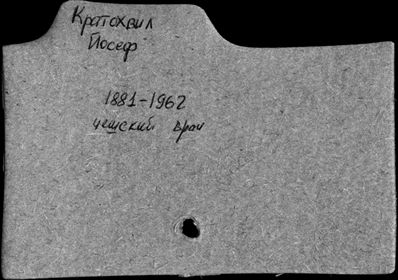 Кратохвил
Йосеф
1881-1962
чешский врач